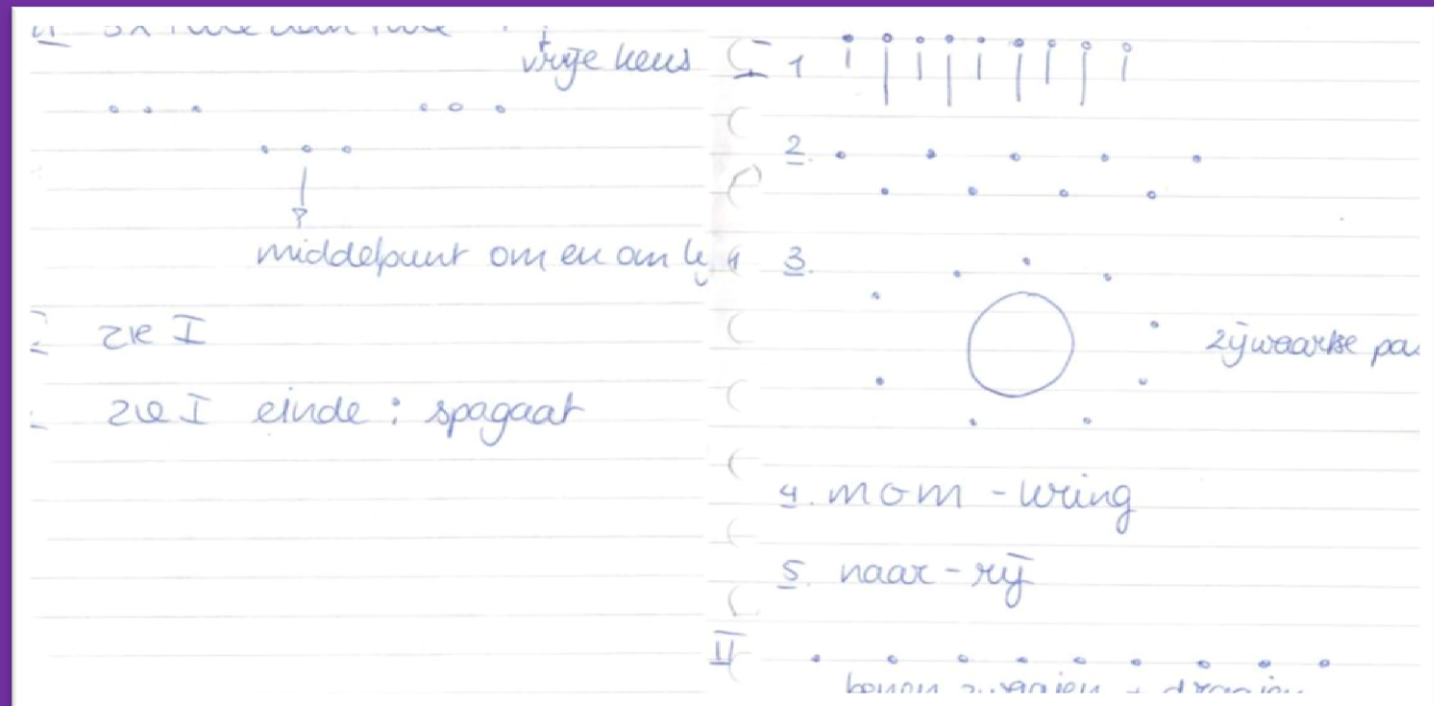 vrije keus
middelpunt om en om
zie I
zie I einde: spagaat
I 1
2.
3.
zijwaartse
4. mom - wring
5. naar - rij
II